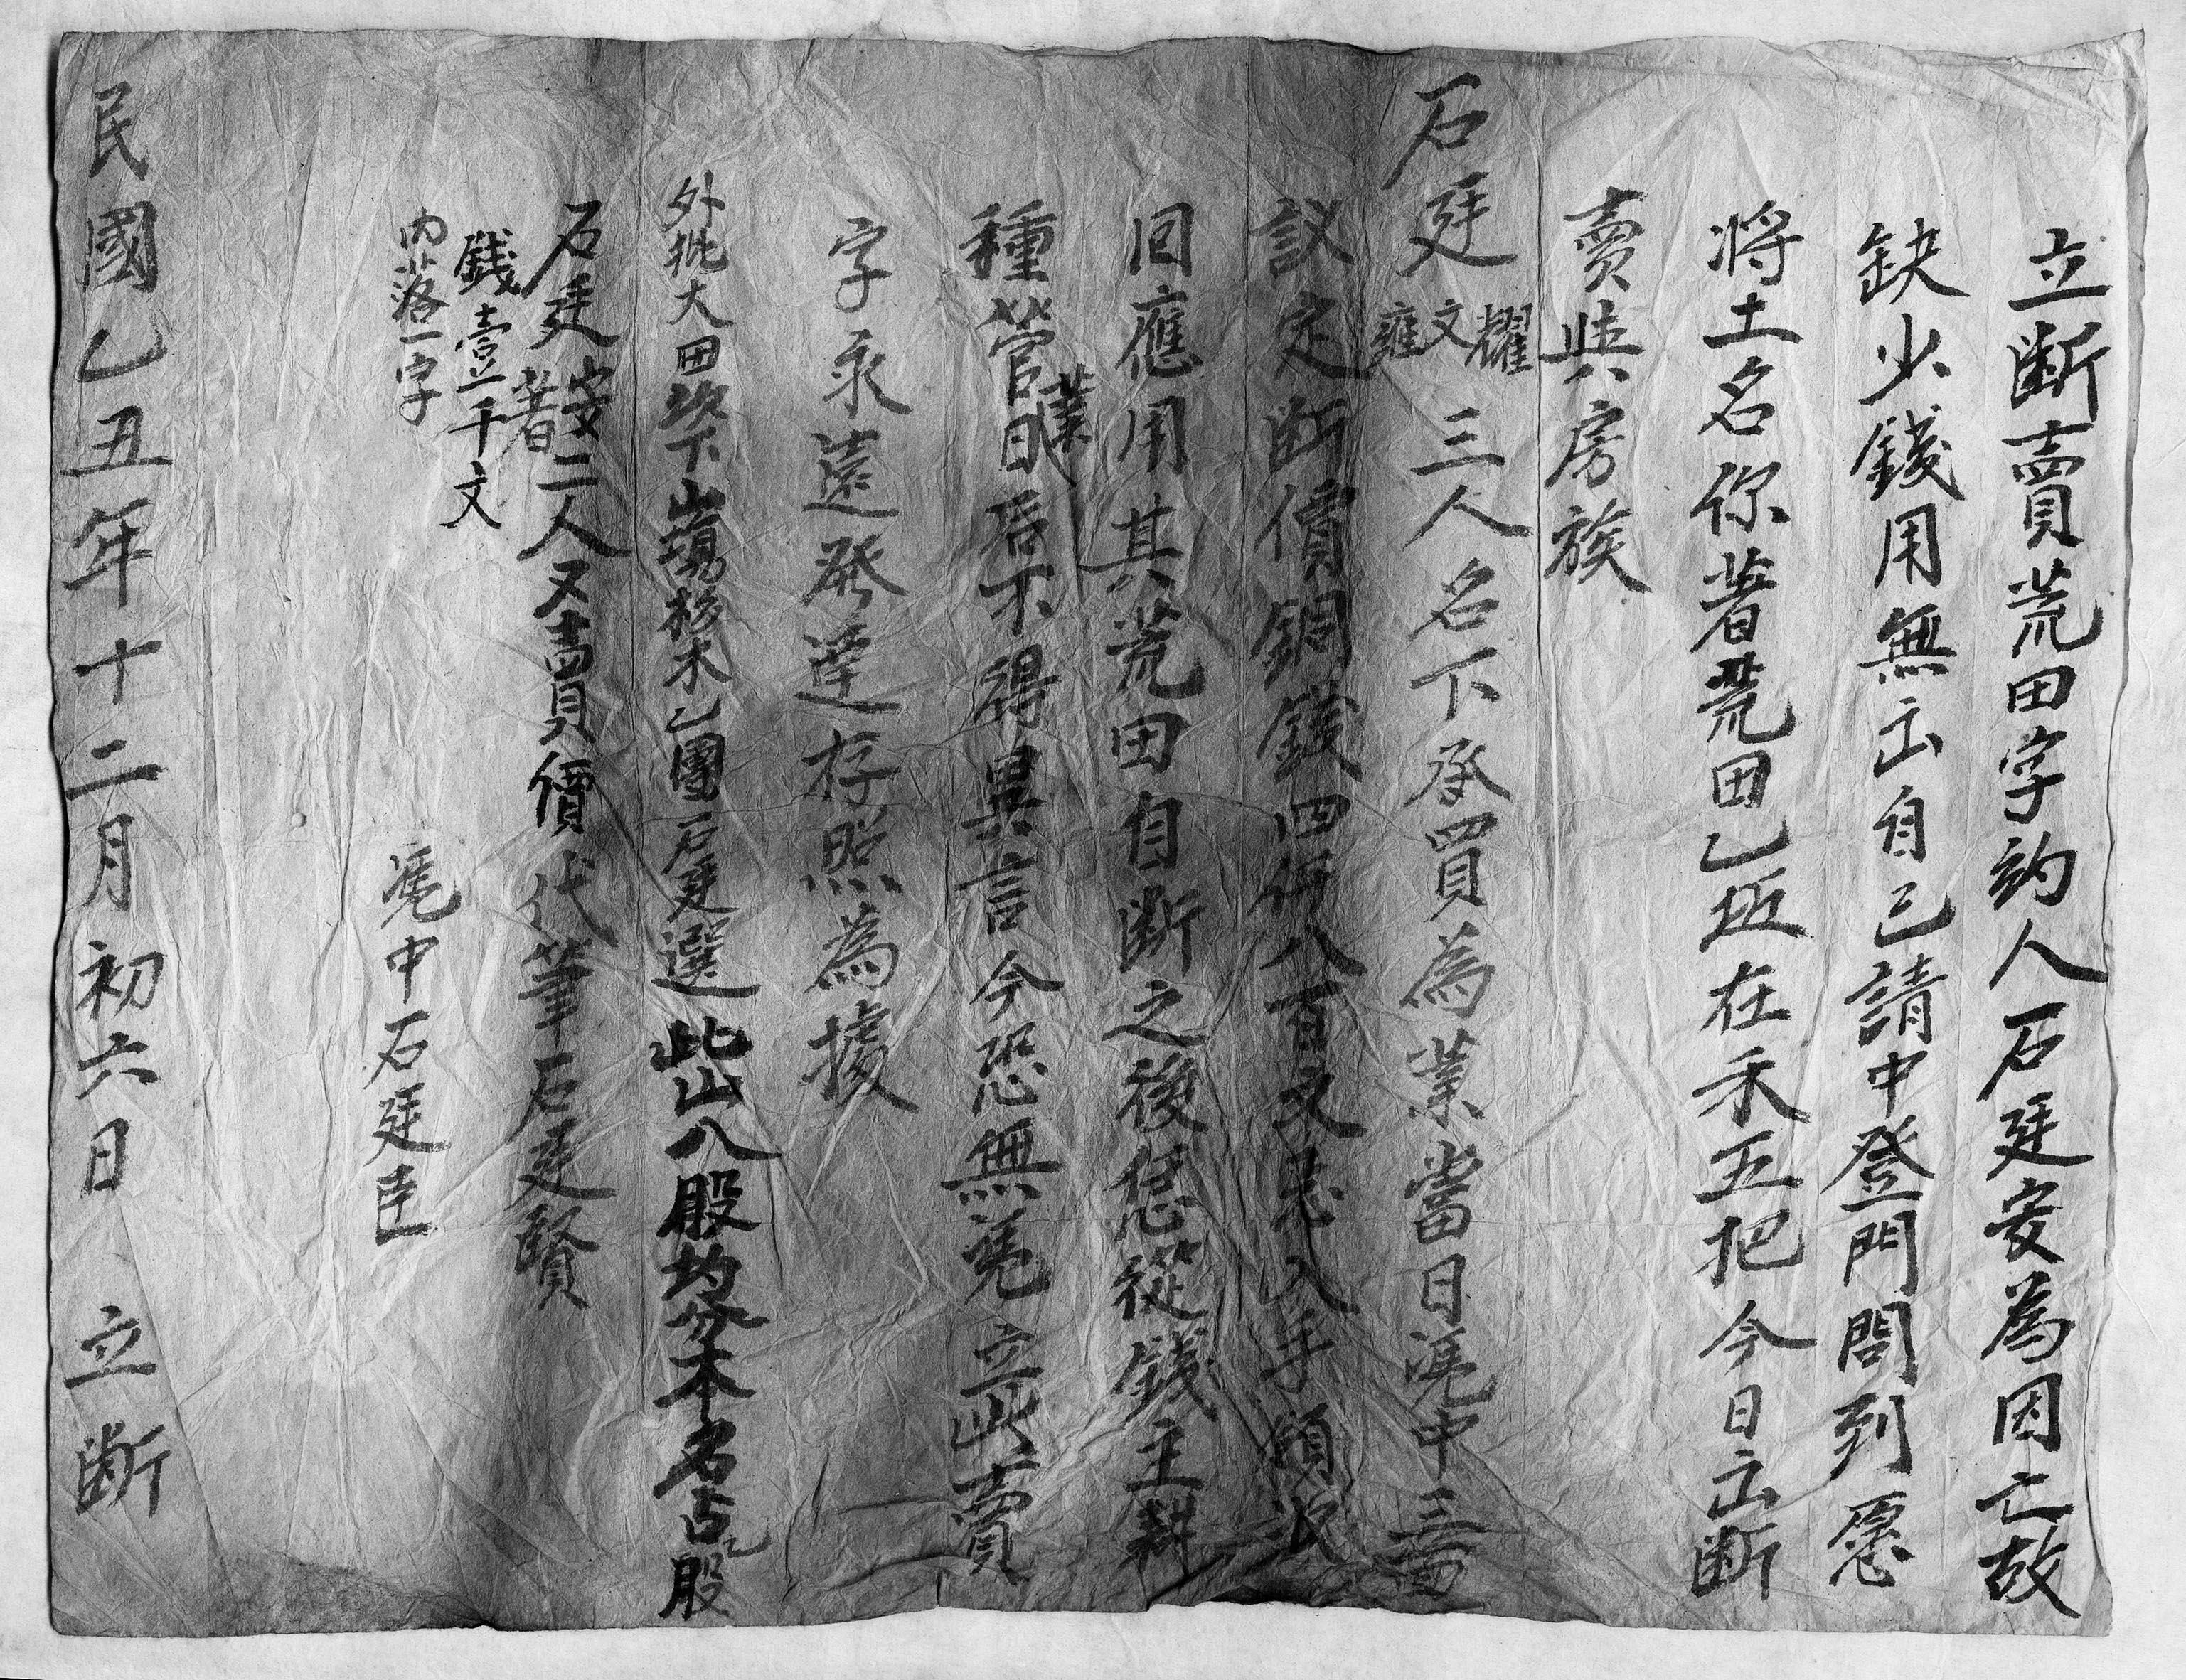 立断賣荒田字約人石廷安為因亡故
缺少錢用無出自己請中登門問到愿
將土名你著荒田乙坵在禾五把今日立断
賣與房族
石廷耀文雍三人名下承買為業當日憑中三面
議定断價銅錢四仟八百文足入手領
回應用其荒田自断之後恁從錢主耕
種管業日后不得異言今恐無憑立此賣
字永遠發達存照為據
外批大田坎下山塲杉木乙團石廷選此山八股均分本名占乙股
石廷安著二人又賣價代筆石廷賢
錢壹千文
内落一字
憑中石廷臣
民國乙丑年十二月初六日立断